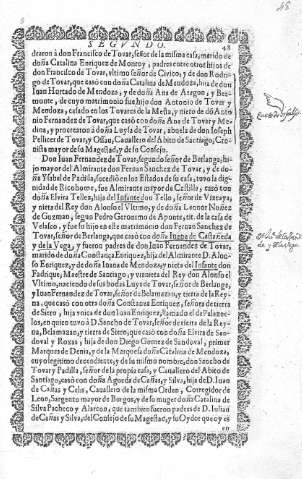 SEGVNDO. 48
draron à don Francisco de Tovar, señor de la misma casa, marido de
doña Catalina Enriquez de Monroy; padres entre otros hijos de
don Francisco de Tovar, vltimo señor de Civico, y de don Rodrigo
de Tovar, que casò con doña Catalina de Mendoza, hija de don
Iuan Hurtado de Mendoza, y de doña Ana de Aragon, y Beamonte,
de cuyo matrimonio fue hijo don Antonio de Tovar y
Mendoza, casado en los Tovares de la Mesta, y nieto de dõ Antonio
Fernandez de Tovar, que casò con doña Ana de Tovar y Medina,
y procrearon à doña Luysa de Tovar, abuela de don Ioseph
Pellicer de Tovar, y Ossau, Cavallero del Abito de Santiago, Cronista
mayor de su Magestad, y de su Consejo.
Don Iuan Fernandez de Tovar, segundo señor de Berlanga, hijo
mayor del Almirante don Fernan Sanchez de Tovar, y de doña
Ysabel de Padilla, sucediò en los Estados de su casa, tuvo la dignidad
de Ricohome, fue Almirante mayor de Castilla, casò con
doña Elvira Tellez, hija del Infante don Tello, señor de Vizcaya,
y nieta del Rey don Alonso el Vltimo, y de doña Leonor Nuñez
de Guzman, segun Pedro Geronimo de Aponte, tit. de la casa de
Velasco, y fue su hijo en este matrimonio don Fernan Sanchez de
Tovar, señor de Berlanga, que casò con doña Iuana de Castañeda
y de la Vega, y fueron padres de don Iuan Fernandez de Tovar,
marido de doña Constança Enriquez, hija del Almirante D. Alonso
Enriquez, y de doña Iuana de Mendoza y nieta del Infante don
Fadrique, Maestre de Santiago, y visnieta del Rey don Alonso el
Vltimo, naciendo de sus bodas Luys de Tovar, señor de Berlanga,
y Iuan Fernandez de Tovar, señor de Belamazan, y tierra de la Reyna,
que casò con otra doña Constança Enriquez, señora de tierra
de Siero, hija de don Iuan Enriquez, llamado el de Palazuelos,
en quien tuvo à D. Sancho de Tovar, señor de tierra de la Reyna,
Belamazan, y tierra de Siero, que casò con doña Elvira de Sandoval
y Roxas, hija de don Diego Gomez de Sandoval, primer
Marques de Denia, y de la Marquesa doña Catalina de Mendoza,
cuyo legitimo decendiente, y de su mismo nombre, don Sancho de
Tovar y Padilla, señor de la propia casa, y Cavallero del Abito de
Santiago, casò con doña Agueda de Cañas, y Silva, hija de D. Iuan
de Cañas y Celis, Cavallero de la misma Orden, Corregidor de
Leon, Sargento mayor de Burgos, y de su muger doña Catalina de
Silva Pacheco y Alarcon, que tambien fueron padres de D. Iulian
de Cañas y Silva, del Consejo de su Magestad, y su Oydor que oy es
en